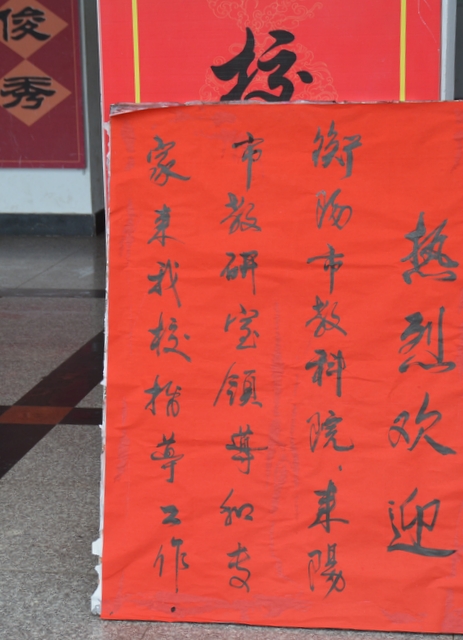 俊秀
校
热烈欢迎
衡陽市教科院、耒陽
市教研室領導和专
家来我校指導工作